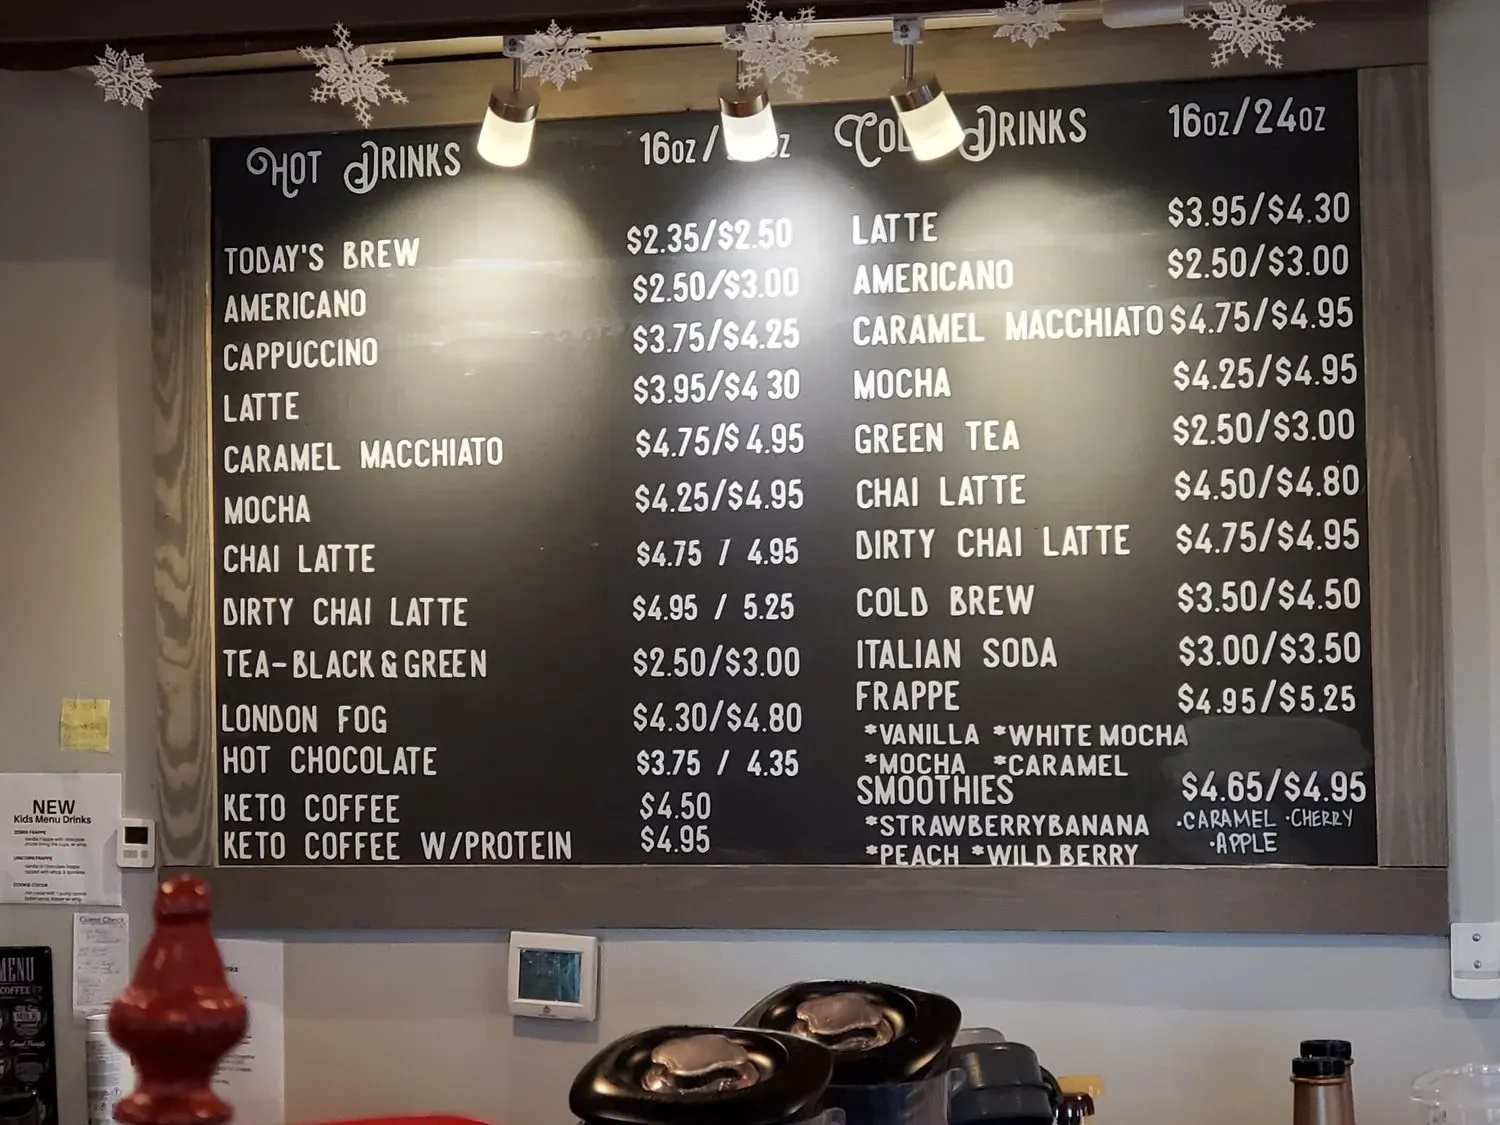 HOT DRINKS 16oz/ oz
TODAY'S BREW $2.35/$2.50
AMERICANO $2.50/$3.00
CAPPUCCINO $3.75/$4.25
LATTE $3.95/$4 30
CARAMEL MACCHIATO $4.75/$4.95
MOCHA $4.25/$4.95
CHAI LATTE $4.75 / 4.95
DIRTY CHAI LATTE $4.95 / 5.25
TEA-BLACK & GREEN $2.50/$3.00
LONDON FOG $4.30/$4.80
HOT CHOCOLATE $3.75 / 4.35
KETO COFFEE $4.50
KETO COFFEE W/PROTEIN $4.95
COLD DRINKS 16oz/24oz
LATTE $3.95/$4.30
AMERICANO $2.50/$3.00
CARAMEL MACCHIATO $4.75/$4.95
MOCHA $4.25/$4.95
GREEN TEA $2.50/$3.00
CHAI LATTE $4.50/$4.80
DIRTY CHAI LATTE $4.75/$4.95
COLD BREW $3.50/$4.50
ITALIAN SODA $3.00/$3.50
FRAPPE $4.95/$5.25
*VANILLA *WHITE MOCHA
*MOCHA *CARAMEL
SMOOTHIES $4.65/$4.95
*STRAWBERRYBANANA
*PEACH *WILD BERRY
·CARAMEL ·CHERRY
·APPLE
NEW
Kids Menu Drinks
ZEBRA FRAPPE
UNICORN FRAPPE
COOKIE COCOA
Guest Check
MENU
COFFEE